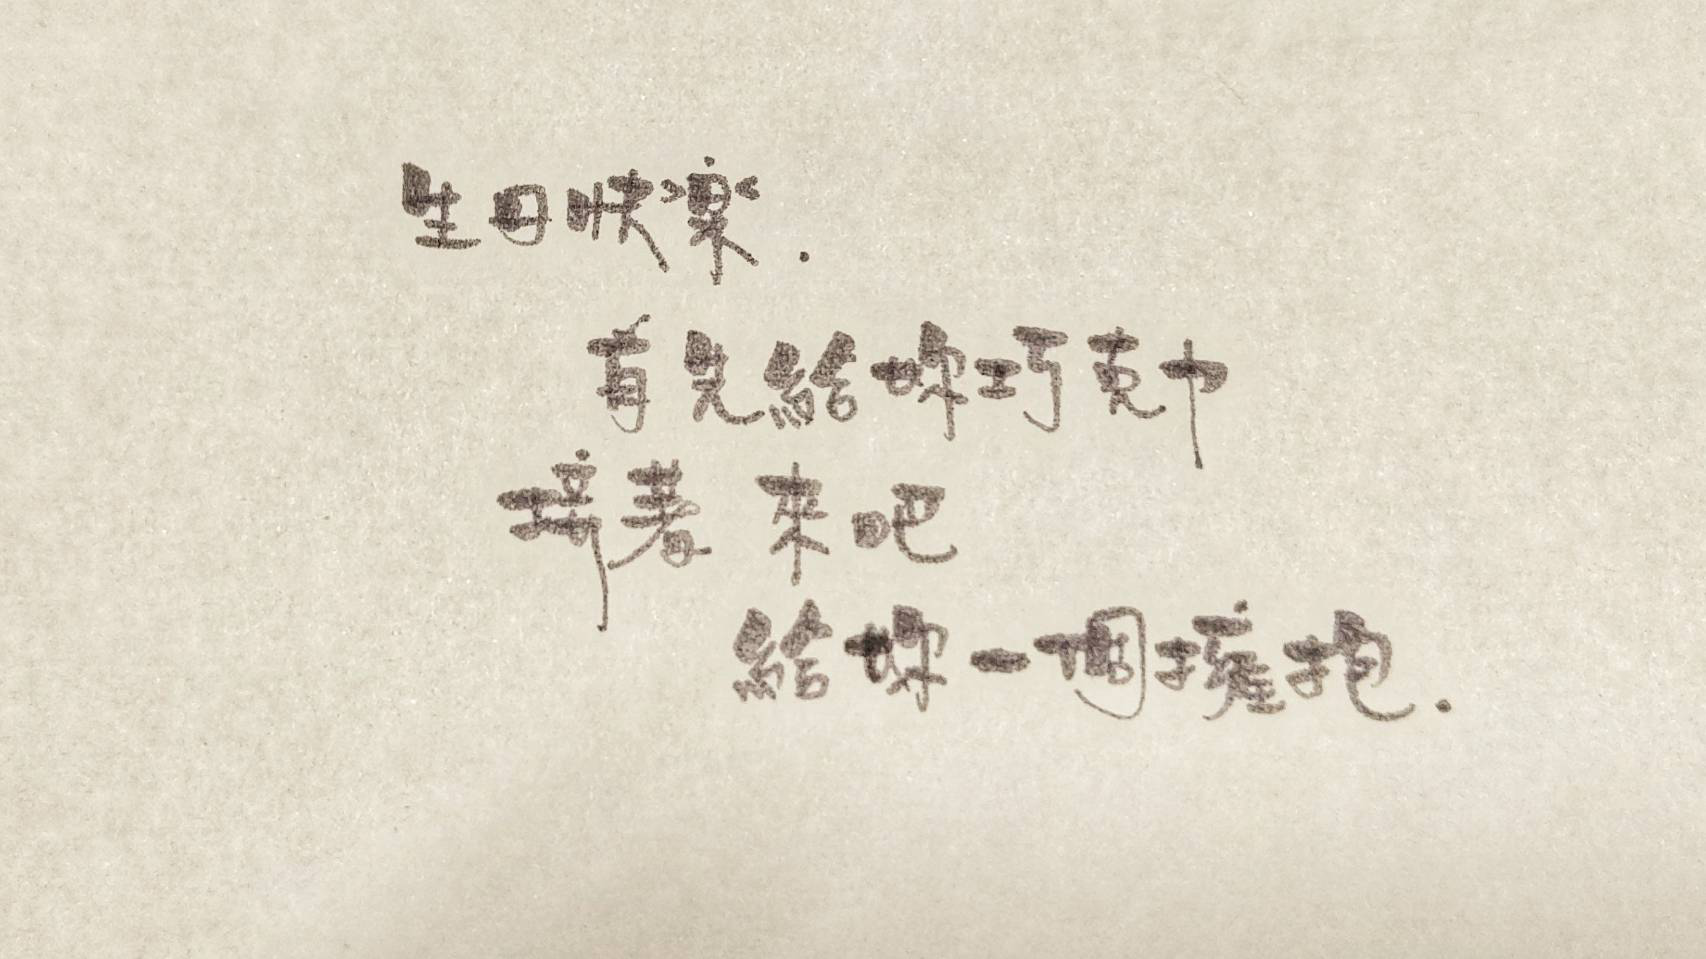 生日快樂.
首先給妳巧克力
接著 來吧
給妳一個擁抱.